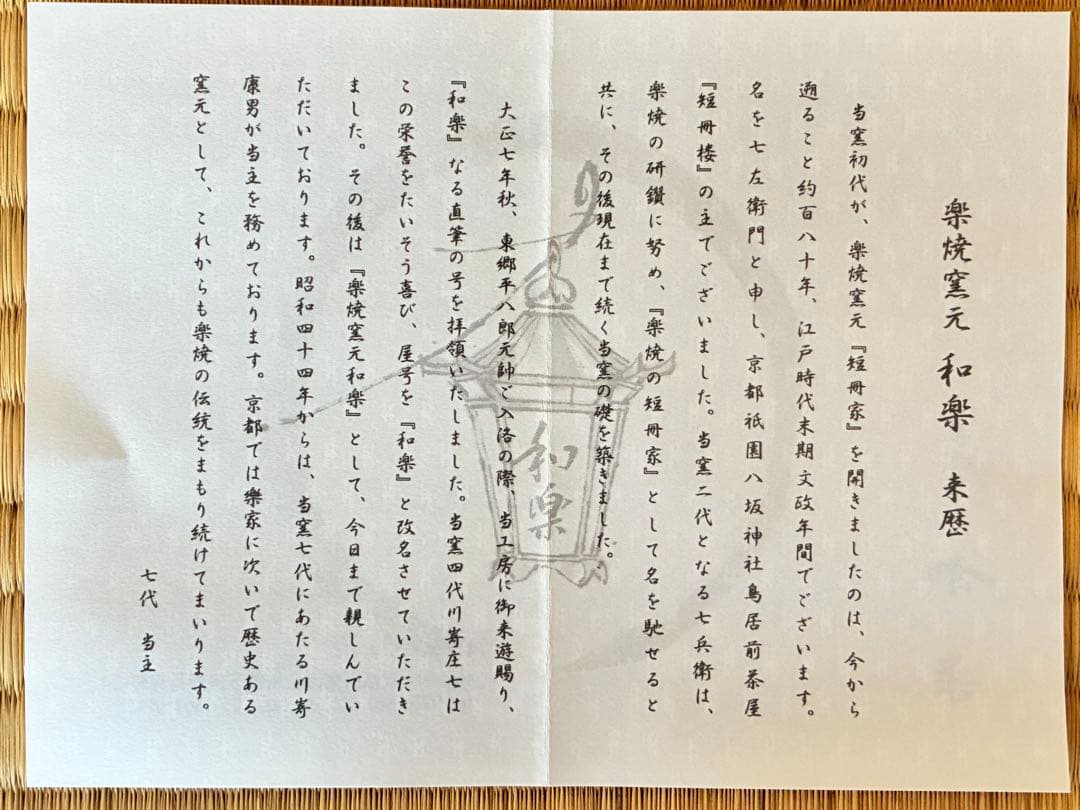 楽焼窯元 和楽 来歴
当窯初代が、楽焼窯元『短冊家』を開きましたのは、今から
遡ること約百八十年、江戸時代末期文政年間でございます。
名を七左衛門と申し、京都祇園八坂神社鳥居前茶屋
『短冊楼』の主でございました。当窯二代となる七兵衛は、
楽焼の研鑽に努め、『楽焼の短冊家』として名を馳せると
共に、その後現在まで続く当窯の礎を築きました。
大正七年秋、東郷平八郎元帥ご入洛の際、当工房に御来遊賜り、
『和樂』なる直筆の号を拝領いたしました。当窯四代川嵜庄七は
この栄誉をたいそう喜び、屋号を『和楽』と改名させていただき
ました。その後は『楽焼窯元和楽』として、今日まで親しんでい
ただいております。昭和四十四年からは、当窯七代にあたる川嵜
康男が当主を務めております。京都では樂家に次いで歴史ある
窯元として、これからも楽焼の伝統をまもり続けてまいります。
七代 当主
和楽